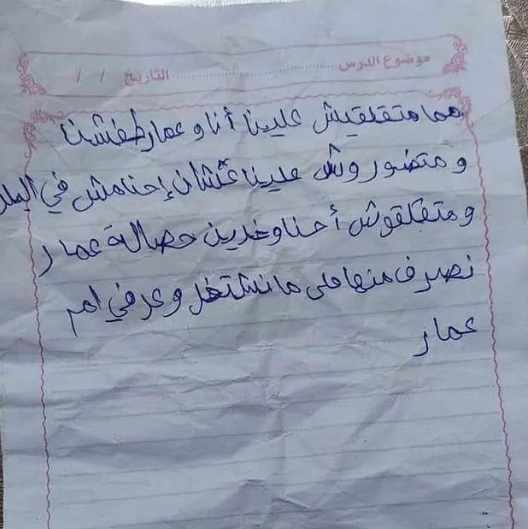 موضوع الدرس ............ التاريخ / /
هما متقلقيش علينا أنا و عمار طفشنا
و متضوروش علينا عشان إحنا مش في البلد
و متقلقوش أحنا وخدين حصالة عمار
نصرف منها على ما نشتغل وعرفي ام
عمار